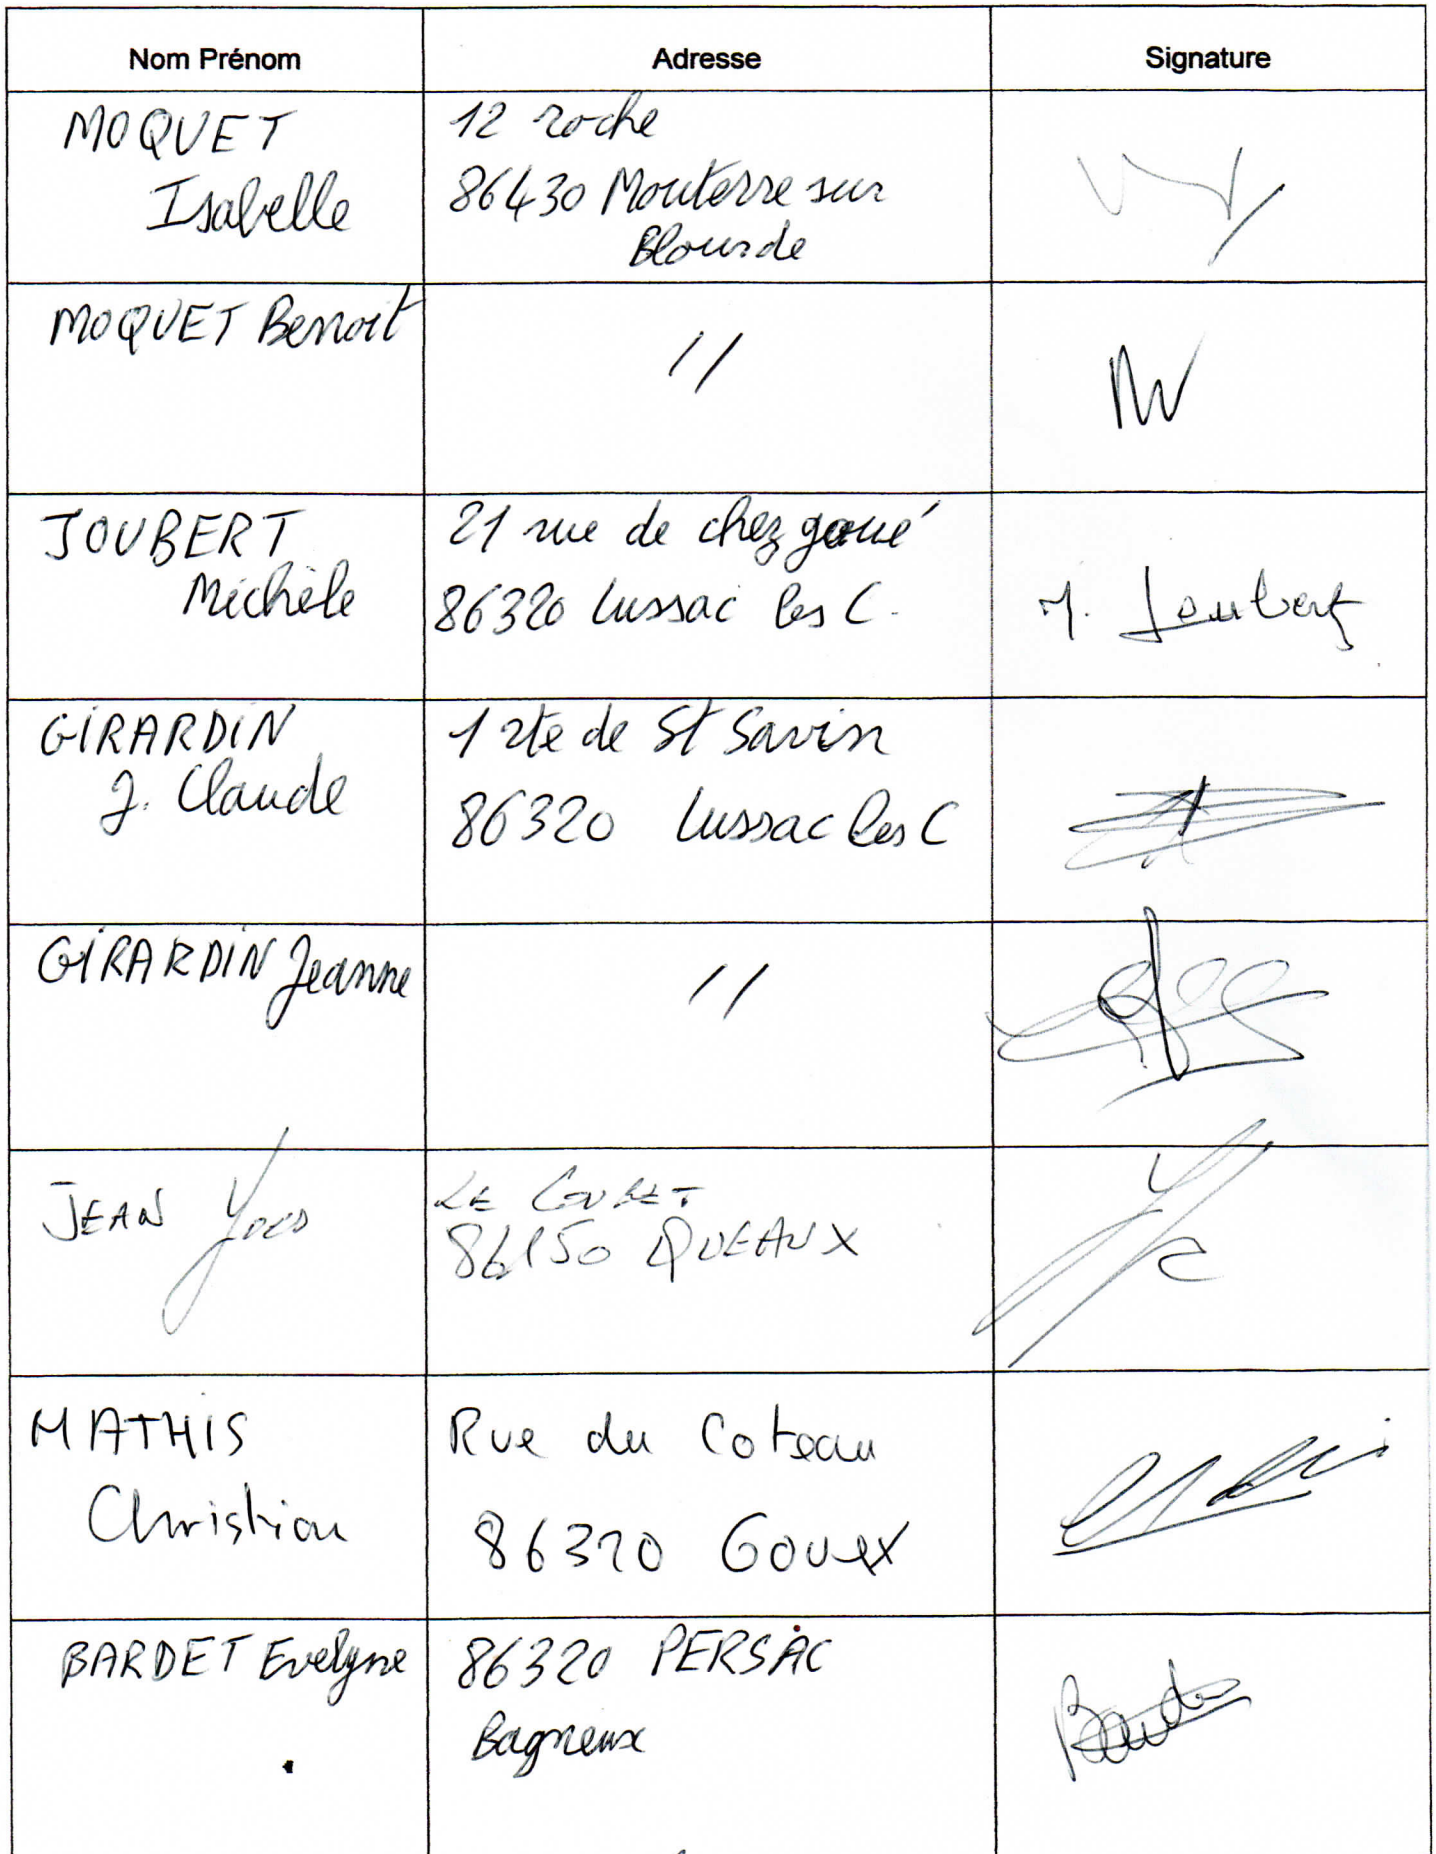 Nom Prénom Adresse Signature
MOQUET
Isabelle
12 roche
86430 Mouterre sur
Blourde
MOQUET Benoit
//
JOUBERT
Michèle
21 rue de chez goué
86320 Lussac les C.
M. Joubert
GIRARDIN
J. Claude
1 rte de St Savin
86320 Lussac les C
GIRARDIN Jeanne
//
JEAN Yves
LE
86150 QUEAUX
MATHIS
Christian
Rue du Coteau
86320 Gouex
BARDET Evelyne
86320 PERSAC
Bagneux